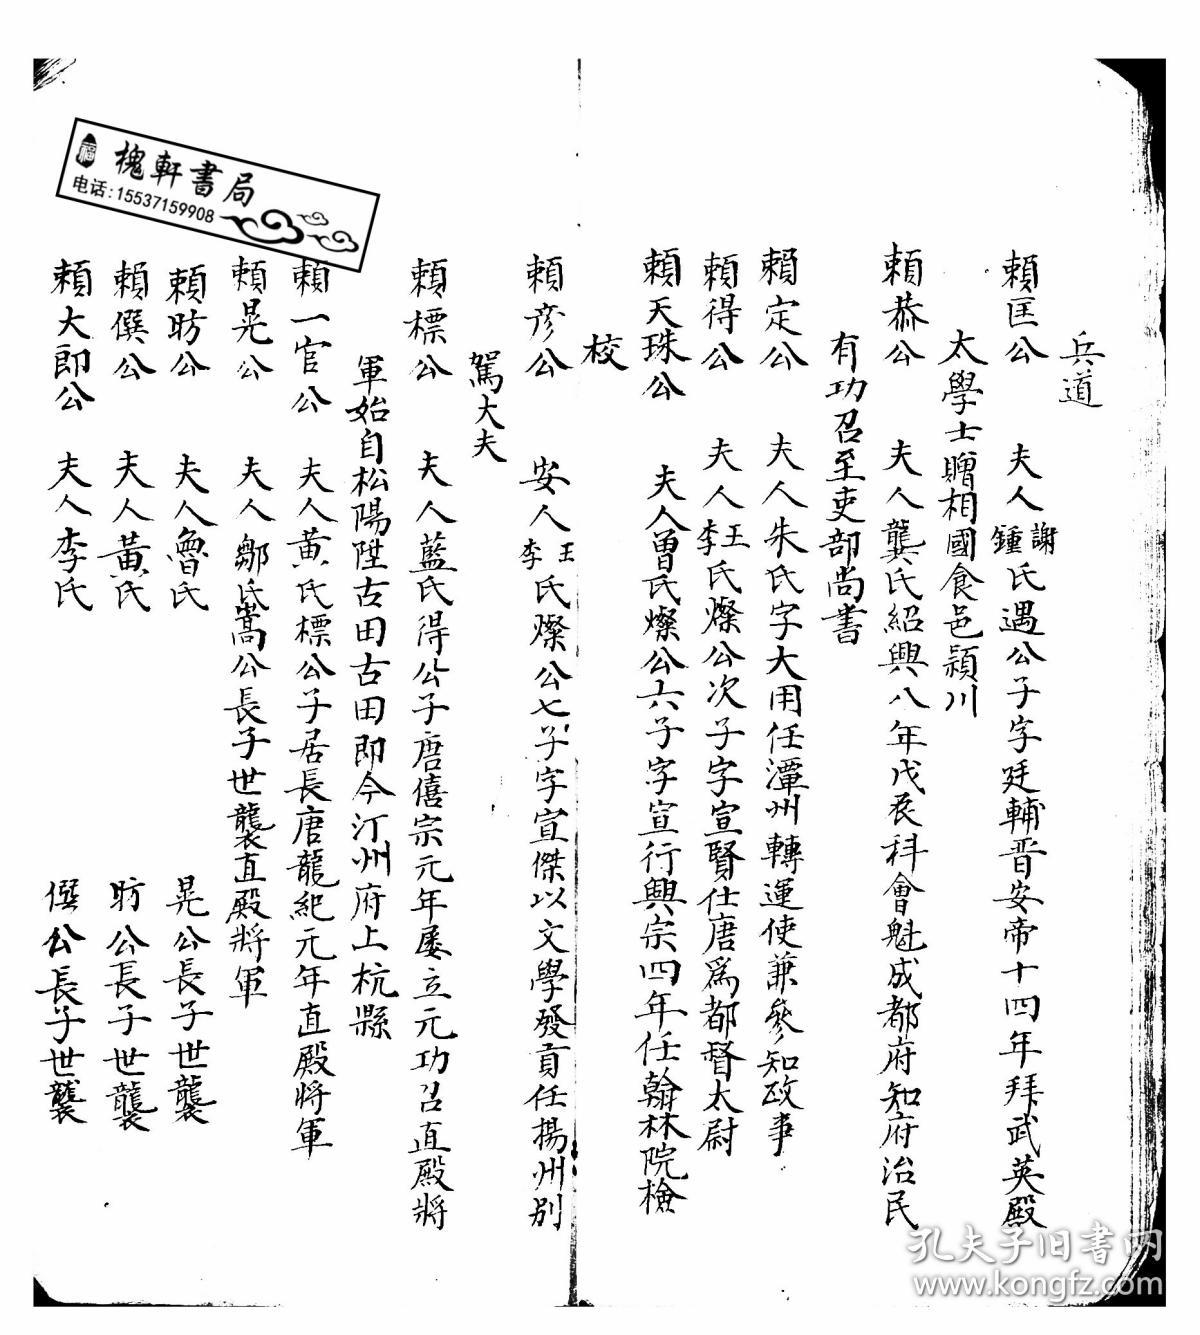 兵道
賴匡公 夫人謝鍾氏遇公子字廷輔晋安帝十四年拜武英殿
太學士贈相國食邑潁川
賴恭公 夫人龔氏紹興八年戊辰科會魁成都府知府治民
有功召至吏部尚書
賴定公 夫人朱氏字大用任潭州轉運使兼參知政事
賴得公 夫人王李氏燦公次子字宣賢仕唐爲都督太尉
賴天珠公 夫人曾氏燦公六子字宣行興宗四年任翰林院檢
校
賴彦公 安人王李氏燦公七子字宣傑以文學發貢任揚州別
駕大夫
賴標公 夫人藍氏得公子唐僖宗元年屡立元功召直殿將
軍始自松陽陞古田古田即今汀州府上杭縣
賴一官公 夫人黃氏標公子居長唐龍紀元年直殿將軍
賴晃公 夫人鄒氏嵩公長子世襲直殿將軍
賴昉公 夫人魯氏 晃公長子世襲
賴僎公 夫人黃氏 昉公長子世襲
賴大郎公 夫人李氏 僎公長子世襲
福
槐軒書局
电话:15537159908
孔夫子旧書网
www.kongfz.com